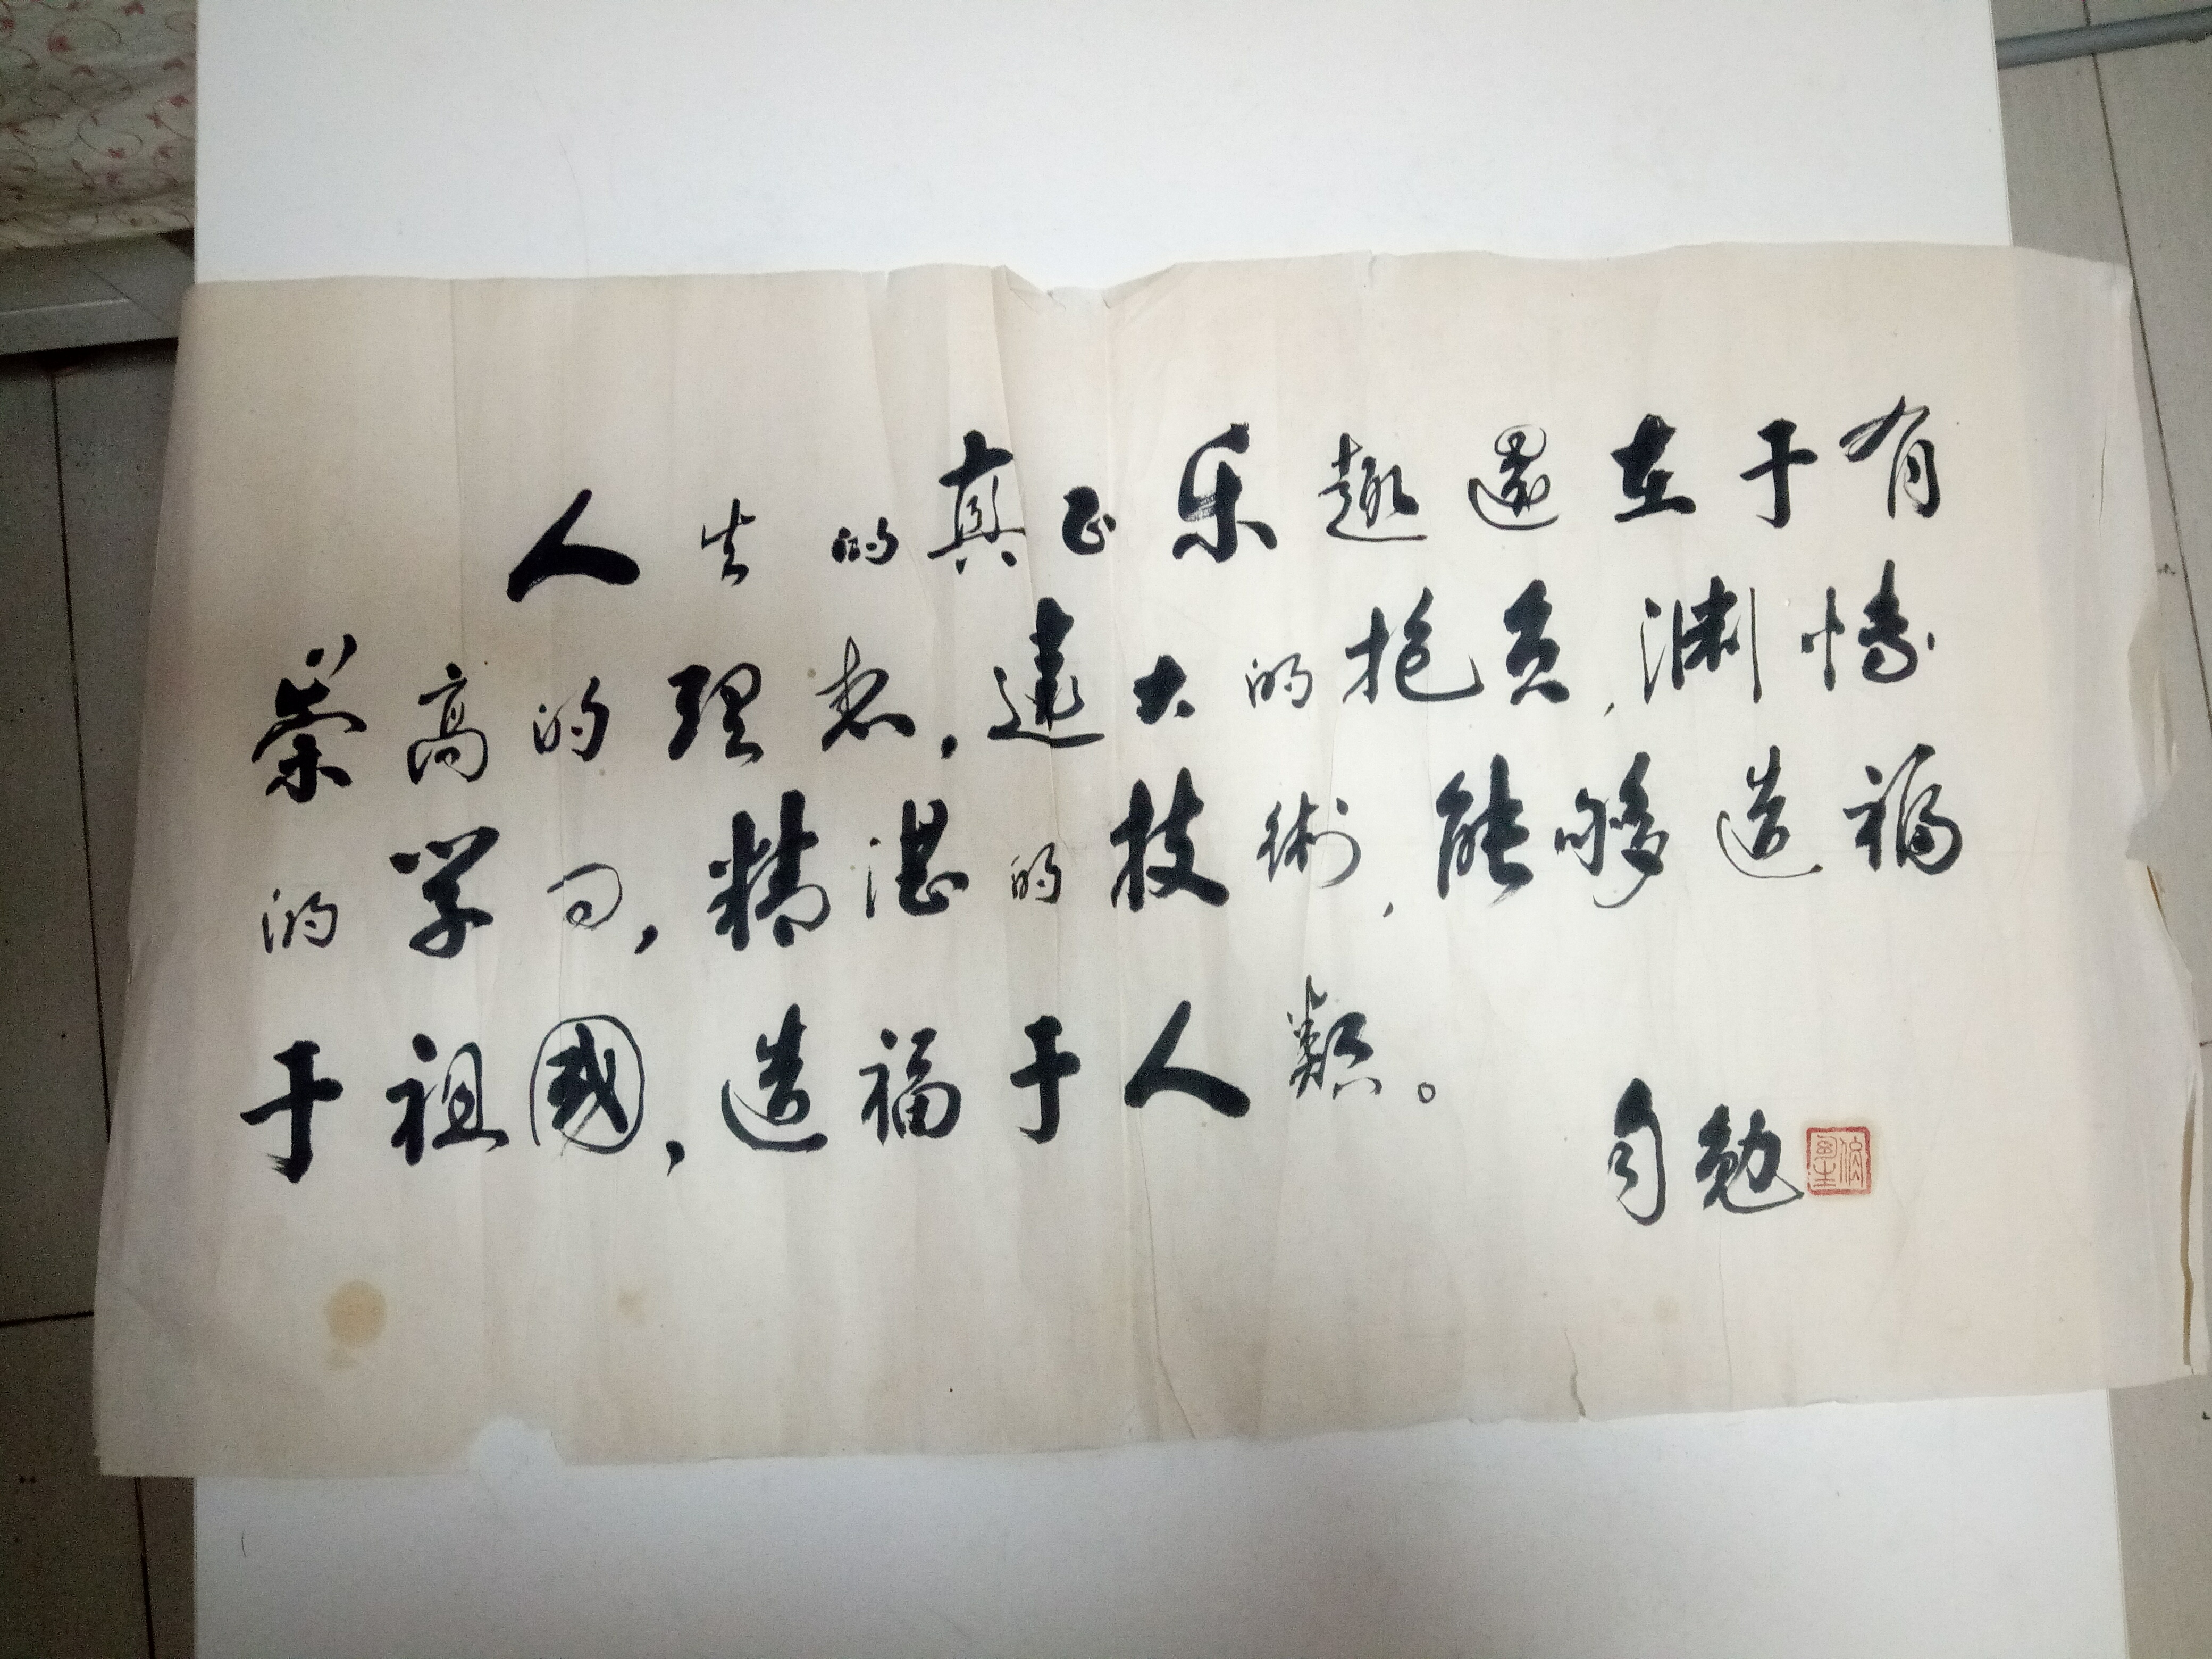 人生的真正乐趣還在于有
崇高的理想，遠大的抱负，渊博
的学问，精湛的技術，能够造福
于祖國，造福于人類。
自勉